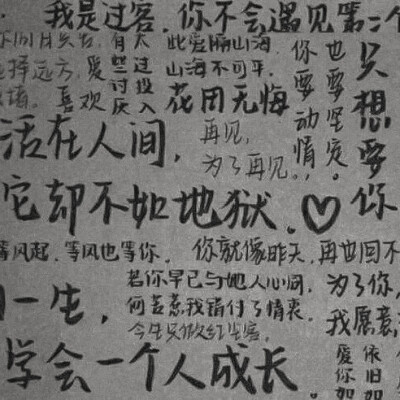 我是过客,你不会遇见第二个
有太
些过
讨投
厌入
此爱隔山海,
山海不可平,
选择远方,爱
喜欢
花用无悔
你也
要要
动坚
情定
只想要你
活在人间,
再见,
为了再见。
它却不如地狱.♡
等风起,等风也等你,
你就像昨天,再也回不
若你早已与她人心同,
何苦惹我错付了情衷。
今生只做红尘客,
为了你,
我愿意
一生,
学会一个人成长。
爱你如
依旧如